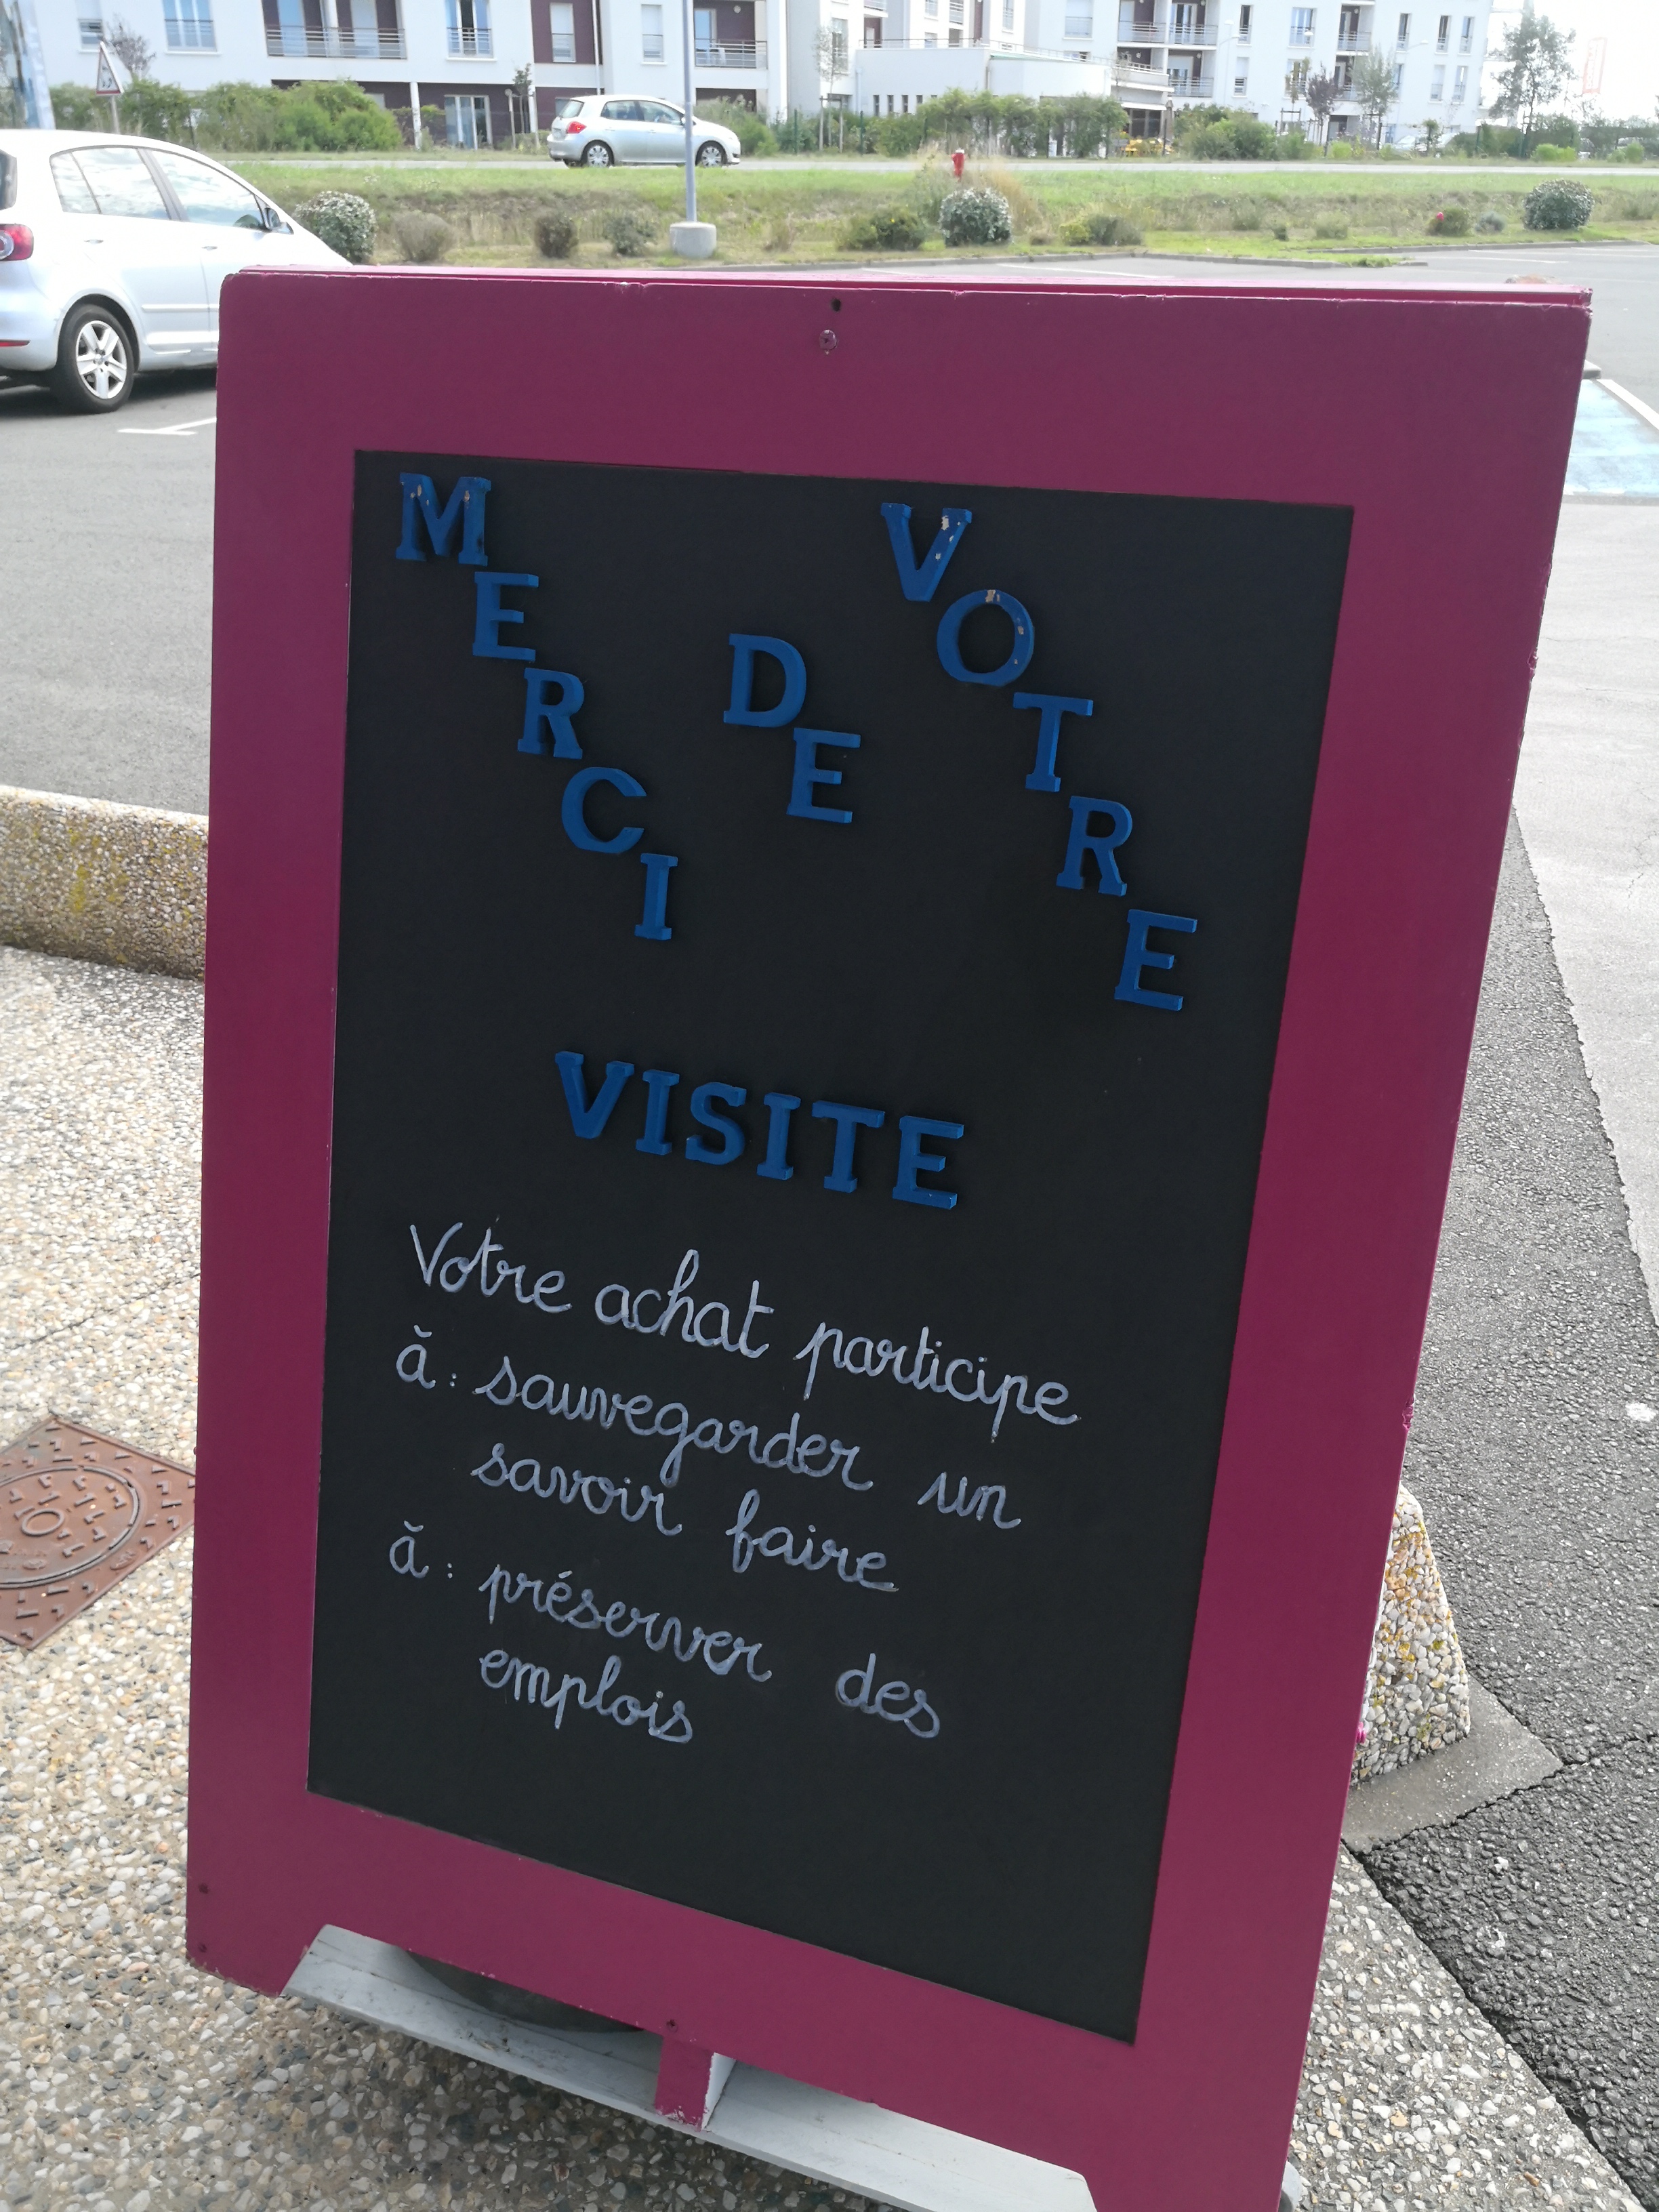 MERCI
DE
VOTRE
VISITE
Votre achat participe
à : sauvegarder un
savoir faire
à : préserver des
emplois